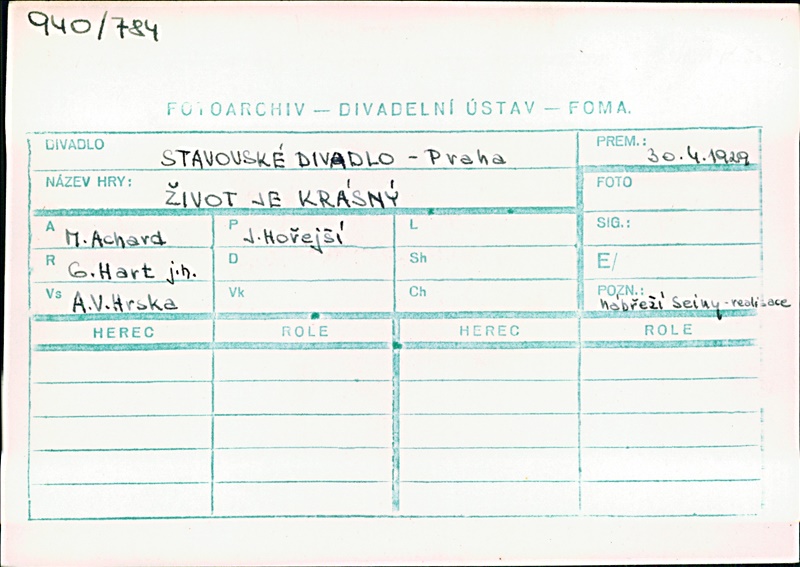 940/784
FOTOARCHIV — DIVADELNÍ ÚSTAV — FOMA.
DIVADLO STAVOVSKÉ DIVADLO - Praha PREM.: 30.4.1929
NÁZEV HRY: ŽIVOT JE KRÁSNÝ FOTO
A M. Achard P J. Hořejší L SIG.:
R G. Hart j.h. D Sh E/
Vs A.V. Hrska Vk Ch POZN.: nábřeží Seiny - realisace
HEREC ROLE HEREC ROLE